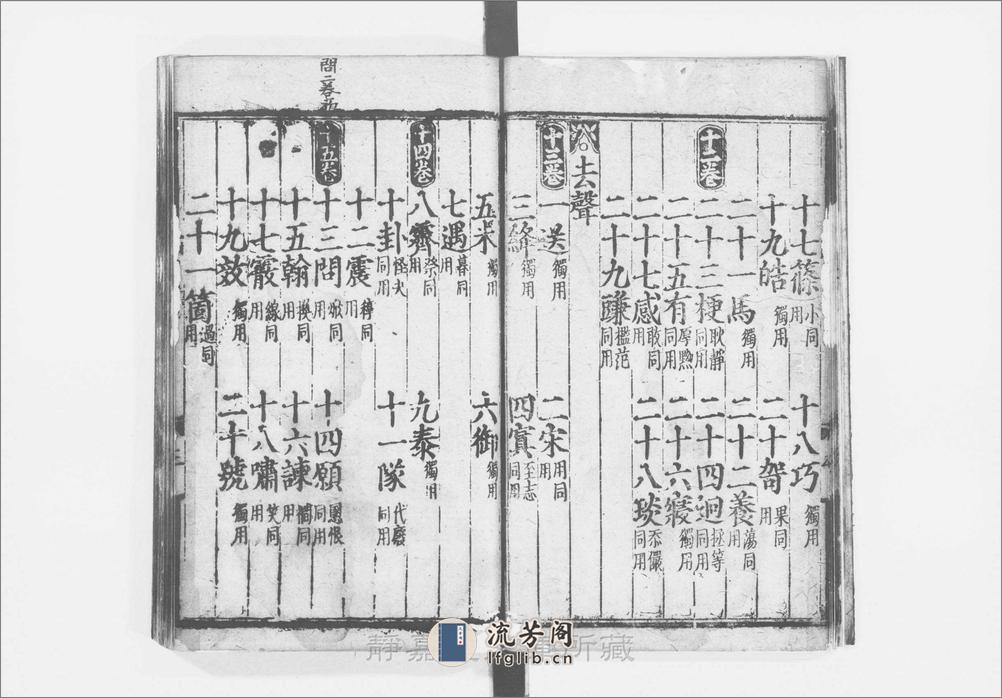 十七篠小同用 十八巧獨用
十九皓獨用 二十哿果同用
二十一馬獨用 二十二養蕩同用
十二卷
二十三梗耿靜同用 二十四迥拯等同用
二十五有厚黝同用 二十六寢獨用
二十七感敢同用 二十八琰忝儼同用
二十九豏檻范同用
去聲
十三卷
一送獨用 二宋用同用
三絳獨用 四寘至志同用
五未獨用 六御獨用
七遇暮同用
十四卷
八霽祭同用 九泰獨用
十卦怪夬同用 十一隊代廢同用
十二震稕同用
十五卷
十三問焮同用 十四願慁恨同用
十五翰換同用 十六諫襉同用
十七霰線同用 十八嘯笑同用
十九效獨用 二十號獨用
二十一箇過同用
問二卷
静嘉 所藏
流芳阁
lfglib.cn